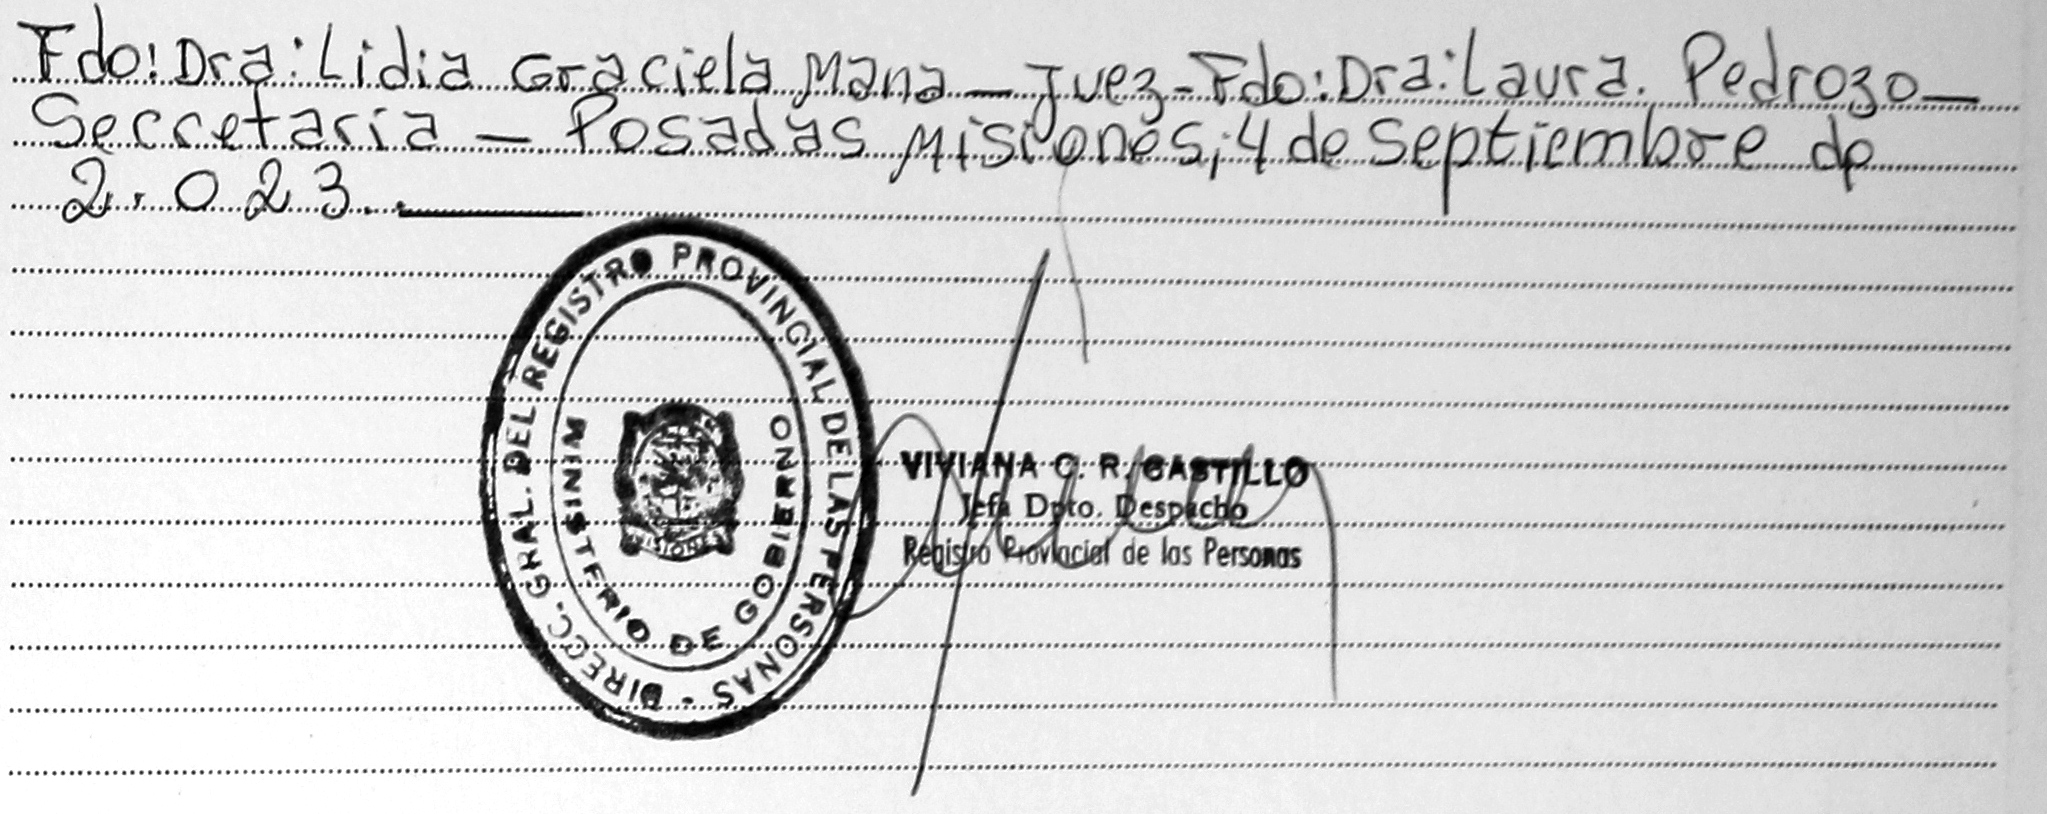 Fdo: Dra: Lidia Graciela Mana — Juez - Fdo: Dra: Laura. Pedrozo —
Secretaria — Posadas Misiones, 4 de Septiembre de
2.023.
DIRECC. GRAL. DEL REGISTRO PROVINCIAL DE LAS PERSONAS -
MINISTERIO DE GOBIERNO
MISIONES
VIVIANA C. R. CASTILLO
Jefa Dpto. Despacho
Registro Provincial de las Personas